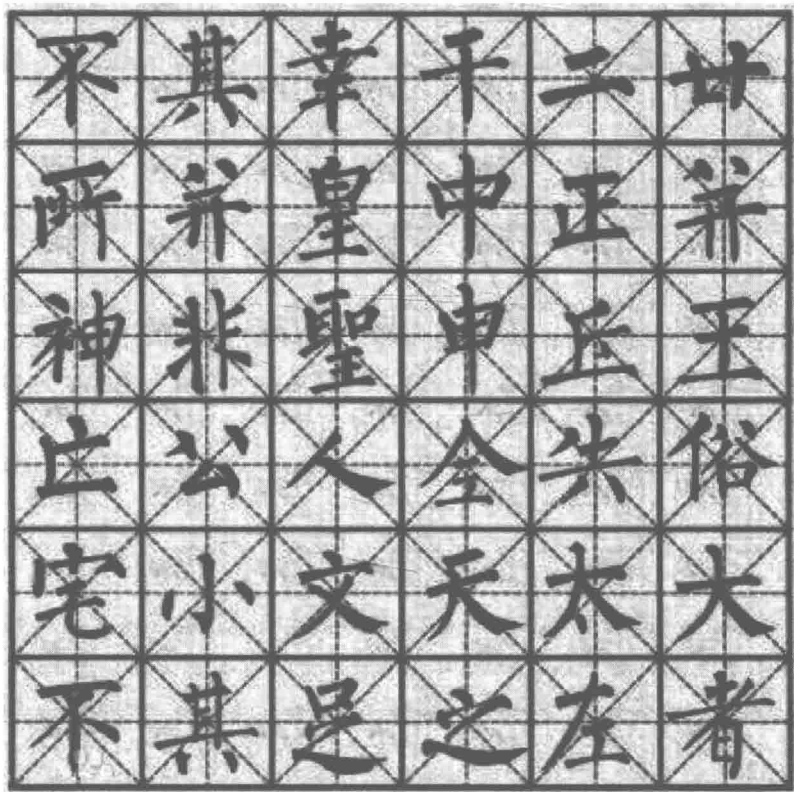 不其幸干二廿
所并皇中正并
神非聖申丘王
公人全失俗
宅小文天太大
不其之左者